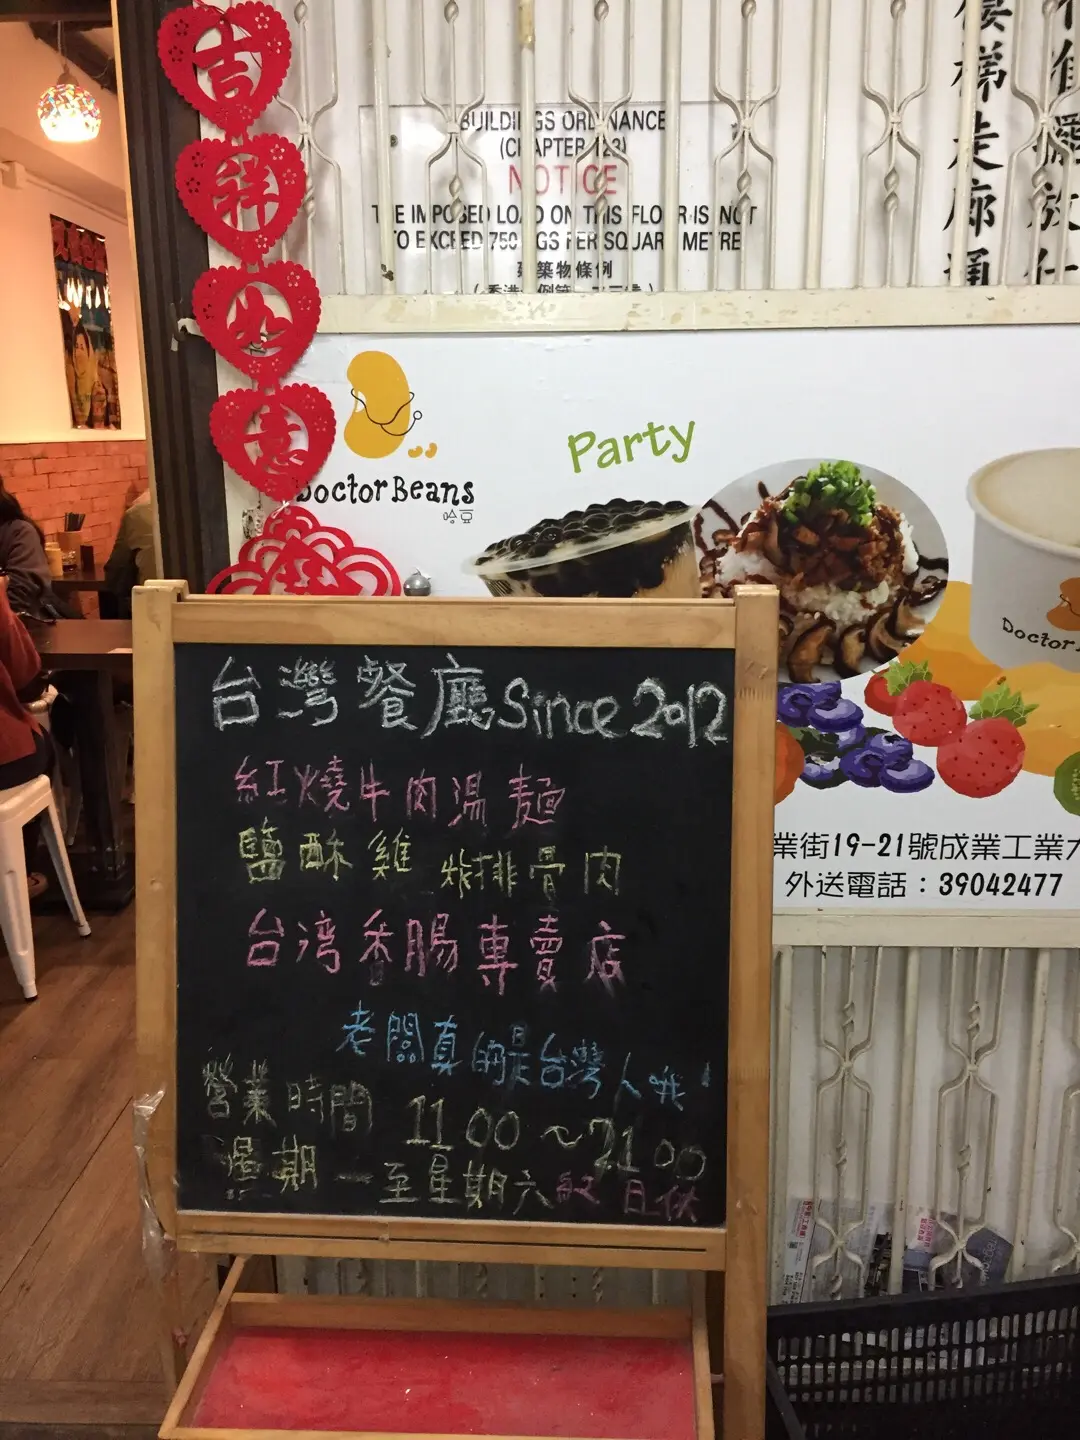 吉祥如意
BUILDINGS ORDINANCE
(CHAPTER 123)
NOTICE
THE IMPOSED LOAD ON THIS FLOOR IS NOT
TO EXCEED 750 KGS PER SQUARE METRE
建築物條例
樓梯走廊通
DoctorBeans
哈豆
Party
Doctor
業街19-21號成業工業大
外送電話：39042477
台灣餐廳Since2012
紅燒牛肉湯麵
鹽酥雞 炸排骨肉
台湾香腸專賣店
老闆真的是台灣人哦!
營業時間 11 00～21 00
星期一至星期六紅日休